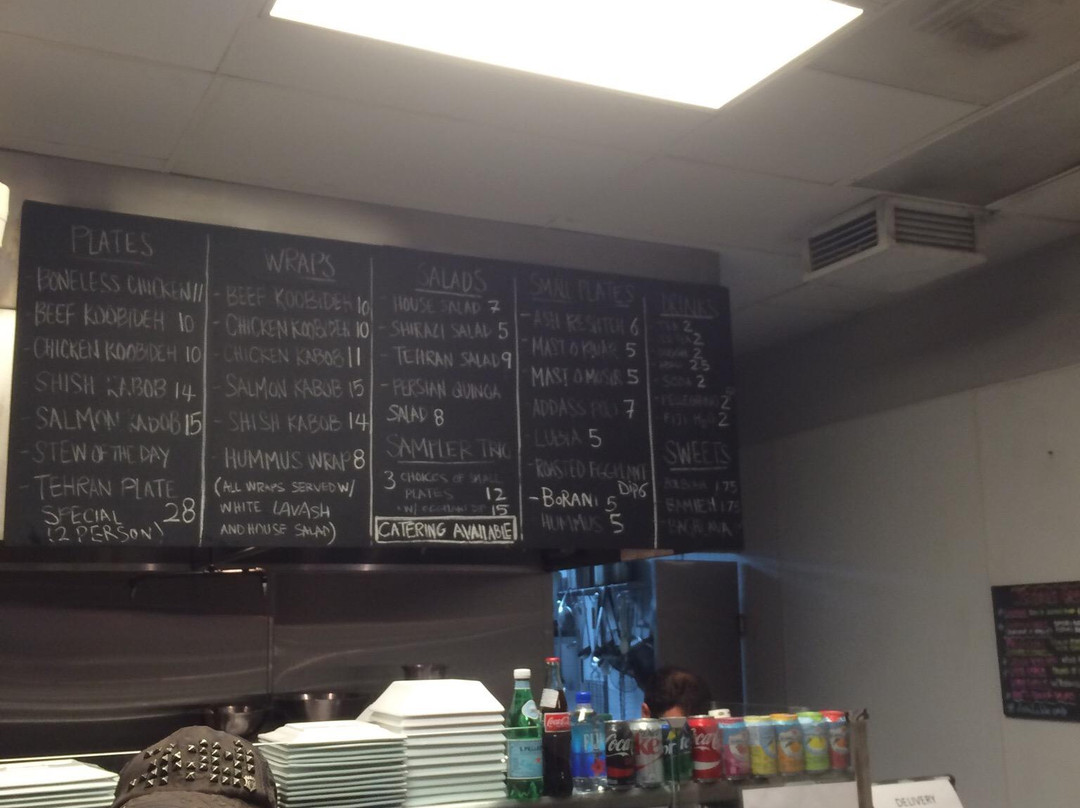 PLATES
- BONELESS CHICKEN 11
- BEEF KOOBIDEH 10
- CHICKEN KOOBIDEH 10
- SHISH KABOB 14
- SALMON KABOB 15
- STEW OF THE DAY
- TEHRAN PLATE
SPECIAL 28
(2 PERSON)
WRAPS
- BEEF KOOBIDEH 10
- CHICKEN KOOBIDEH 10
- CHICKEN KABOB 11
- SALMON KABOB 15
- SHISH KABOB 14
- HUMMUS WRAP 8
(ALL WRAPS SERVED W/
WHITE LAVASH
AND HOUSE SALAD)
SALADS
- HOUSE SALAD 7
- SHIRAZI SALAD 5
- TEHRAN SALAD 9
- PERSIAN QUINOA
SALAD 8
SAMPLER TRIO
3 CHOICES OF SMALL
PLATES 12
W/ 15
CATERING AVAILABLE
SMALL PLATES
- ASH RESHTEH 6
- MAST O KHIAR 5
- MAST O MUSIR 5
- ADDASS POLO 7
- LUBIA 5
- ROASTED EGGPLANT
DIP 6
- BORANI 5
- HUMMUS 5
DRINKS
TEA 2
2
2
2.5
- SODA 2
- PELLEGRINO 2
- FIJI H2O 2
SWEETS
1.75
- BAMIEH 1.75
- BAKLAVA
Coca-Cola
FIJI
DELIVERY